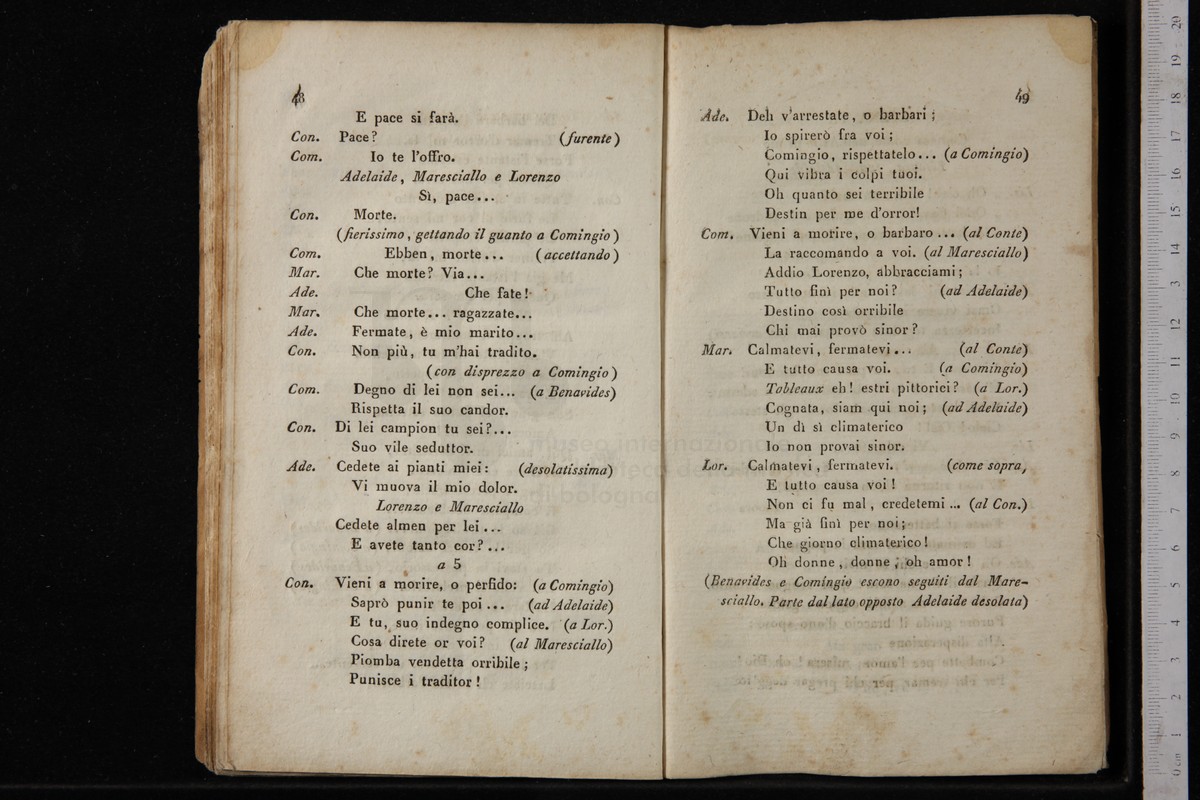 48
E pace si farà.
Con. Pace? (furente)
Com. Io te l'offro.
Adelaide, Maresciallo e Lorenzo
Sì, pace...
Con. Morte.
(fierissimo, gettando il guanto a Comingio)
Com. Ebben, morte... (accettando)
Mar. Che morte? Via...
Ade. Che fate!
Mar. Che morte... ragazzate...
Ade. Fermate, è mio marito...
Con. Non più, tu m'hai tradito.
(con disprezzo a Comingio)
Com. Degno di lei non sei... (a Benavides)
Rispetta il suo candor.
Con. Di lei campion tu sei?...
Suo vile seduttor.
Ade. Cedete ai pianti miei: (desolatissima)
Vi muova il mio dolor.
Lorenzo e Maresciallo
Cedete almen per lei...
E avete tanto cor?...
a 5
Con. Vieni a morire, o perfido: (a Comingio)
Saprò punir te poi... (ad Adelaide)
E tu, suo indegno complice. (a Lor.)
Cosa direte or voi? (al Maresciallo)
Piomba vendetta orribile;
Punisce i traditor!
49
Ade. Deh v'arrestate, o barbari;
Io spirerò fra voi;
Comingio, rispettatelo... (a Comingio)
Qui vibra i colpi tuoi.
Oh quanto sei terribile
Destin per me d'orror!
Com. Vieni a morire, o barbaro... (al Conte)
La raccomando a voi. (al Maresciallo)
Addio Lorenzo, abbracciami;
Tutto finì per noi? (ad Adelaide)
Destino così orribile
Chi mai provò sinor?
Mar. Calmatevi, fermatevi... (al Conte)
E tutto causa voi. (a Comingio)
Tableaux eh! estri pittorici? (a Lor.)
Cognata, siam qui noi; (ad Adelaide)
Un dì sì climaterico
Io non provai sinor.
Lor. Calmatevi, fermatevi. (come sopra,
E tutto causa voi!
Non ci fu mal, credetemi... (al Con.)
Ma già finì per noi;
Che giorno climaterico!
Oh donne, donne, oh amor!
(Benavides e Comingio escono seguiti dal Mare-
sciallo. Parte dal lato opposto Adelaide desolata)
museo internazionale
di bologna
20 19 18 17 16 15 14 13 12 11 10 9 8 7 6 5 4 3 2 1 0 cm